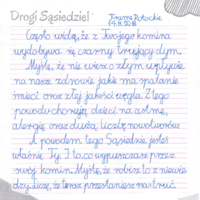 Drogi Sąsiedzie!
Często widzę, że z Twojego komina
wydobywa się czarny trujący dym.
Myślę, że nie wiesz o złym wpływie
na nasze zdrowie jakie ma spalanie
śmieci oraz złej jakości węgla. Z tego
powodu chorują dzieci na astmę,
alergię oraz dużą liczbę nowotworów.
A powodem tego Sąsiedzie jesteś
właśnie Ty. I to, co wypuszczasz przez
swój komin. Myślę, że robisz to z niewie
dzy i liczę, że teraz przestaniesz nas truć.